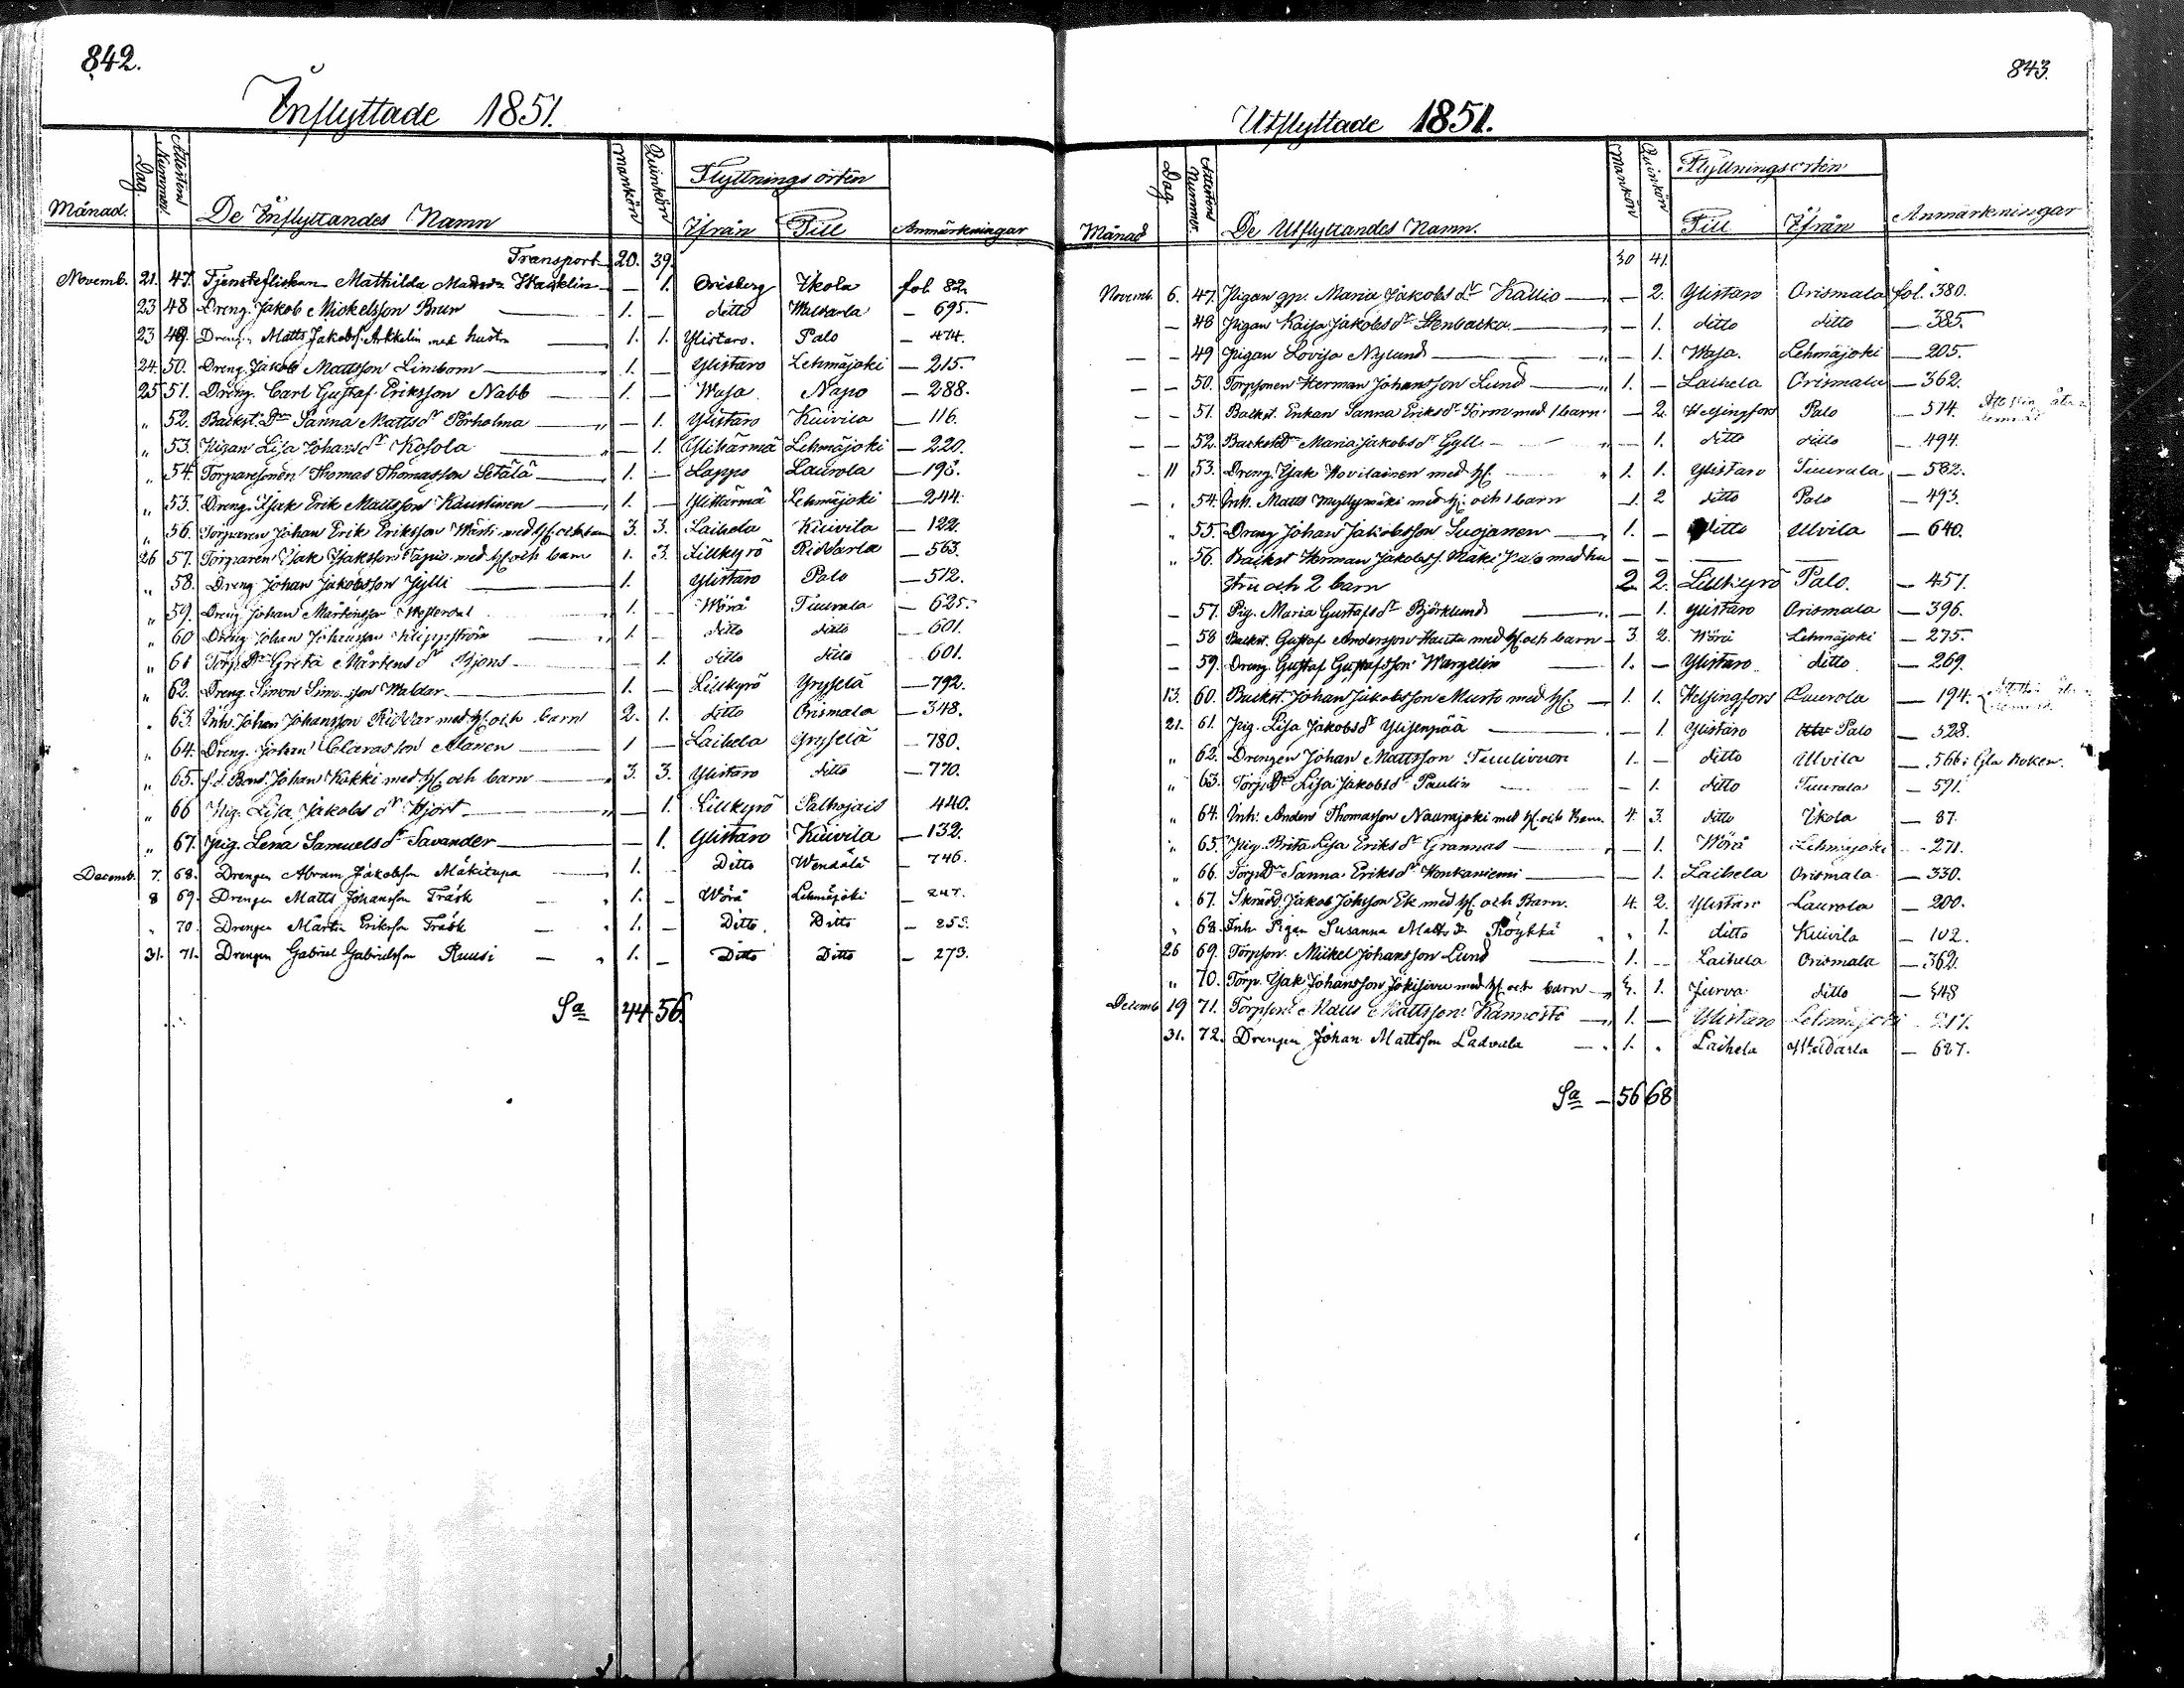 842.
Inflyttade 1851.
Månad. Dag. Attestens Nummer. De Inflyttandes Namn Mankön Quinkön Flyttningsorten Ifrån Till Anmärkningar
Transport 20. 39.
Novemb. 21. 47. Tjensteflickan Mathilda Matsdr — 1. Orisberg Ikola fol. 82.
23 48 Dreng. Jakob Mickelsson Brun — 1. — ditto Waldarla — 695.
23 49. Dreng. Matts Jakobs. Arkkelin med hustru — 1. 1. Ylistaro. Palo — 474.
24. 50. Dreng. Jakob Mattsson Limbom — 1. — Ylistaro Lehmäjoki — 215.
25 51. Dreng. Carl Gustaf Eriksson Nabb — 1. — Wasa Napo — 288.
„ 52. Backst. Dr Sanna Matts dr Pörholma — „ — 1. Ylistaro Kuivila — 116.
„ 53. Pigan Lisa Johans dr Kosola — 1. Ylihärmä Lehmäjoki — 220.
„ 54. Torparesonen Thomas Thomasson Setälä — 1. — Lappo Laurola — 198.
„ 55. Dreng. Isak Erik Mattsson Kaustinen — 1. — Ylihärmä Lehmäjoki — 244.
„ 56. Torparen Johan Erik Eriksson med h. och barn 3. 3. Laihela Kuivila — 122.
26 57. Torparen Isak Isaksson Tapio med h. och barn 1. 3. Lillkyrö Riddarla — 563.
„ 58. Dreng Johan Jakobsson Jylli — 1. Ylistaro Palo — 512.
„ 59. Dreng Johan Mårtensson Westerdal 1. — Wörå Tuurala — 625.
„ 60 Dreng Johan Johansson Klippström — 1. — ditto ditto — 601.
„ 61 Torp. Dr Greta Mårtens dr Bjons — 1. ditto ditto 601.
„ 62. Dreng. Simon Simonsson Waldar — 1. — Lillkyrö Yrysselä — 792.
„ 63. Inh. Johan Johansson Riddar med h. och barn 2. 1. ditto Orismala — 348.
„ 64. Dreng. Johan Claesson Alanen — 1 — Laihela Yrysselä — 780.
„ 65. f.d. Bond. Johan Kukki med h. och barn — 3. 3. Ylistaro ditto — 770.
„ 66 Pig. Lisa Jakobs dr Hjort — „ — 1. Lillkyrö Palhojais 440.
„ 67. Pig. Lena Samuels dr Savander — 1. Ylistaro Kuivila — 132.
Decemb. 7. 68. Drengen Abram Jakobsson Mäkitupa — 1. Ditto Wendälä — 746.
8 69. Drengen Matts Johansson Träsk — 1. — Wörå Lehmäjoki — 247.
„ 70. Drengen Mårten Eriksson Träsk — 1. — Ditto. Ditto — 253.
31. 71. Drengen Gabriel Gabrielsson Ruusi — 1. — Ditto Ditto — 273.
Sa 44 56.
843.
Utflyttade 1851.
Månad Dag. Attestens Nummer. De Utflyttandes Namn. Mankön Quinkön Flyttningsorten Till Ifrån Anmärkningar
30 41.
Novemb. 6. 47. Pigan gr. Maria Jakobs dr Kallio — 2. Ylistaro Orismala fol. 380.
— 48 Pigan Kaisa Jakobs dr Stenbacka — 1. ditto ditto — 385.
— — 49 Pigan Lovisa Nylund — 1. Wasa. Lehmäjoki — 205.
— — 50. Torpsonen Herman Johansson Lund — 1. — Laihela Orismala — 362.
— — 51. Backst. Enkan Sanna Eriks dr Törn med 1 barn — 2. Helsingfors Palo — 514.
— — 52. Backst. Dr Maria Jakobs dr Gylli — — 1. ditto ditto — 494.
— 11 53. Dreng Isak Hovilainen med h. 1. 1. Ylistaro Tuurala — 582.
— „ 54. Inh. Matts Myllymäki med h. och 1 barn 1. 2 ditto Palo — 493.
„ 55. Dreng Johan Jakobsson Luojanen — 1. — ditto Ulvila — 640.
„ 56. Backst Herman Jakobs. Mäki med hu
stru och 2 barn 2 2. Lillkyrö Palo. — 451.
— 57. Pig. Maria Gustafs dr Björklund — 1. Ylistaro Orismala — 396.
— 58 Backst. Gustaf Andersson Hauta med h. och barn 3. 2. Wörå Lehmäjoki — 275.
— 59. Dreng. Gustaf Gustafsson Wargelin — 1. — Ylistaro ditto — 269.
13. 60. Backst. Johan Jakobsson Musto med h. — 1. 1. Helsingfors Laurola — 194.
21. 61. Pig. Lisa Jakobs dr Ylisenpää — 1. Ylistaro Palo — 328.
„ 62. Drengen Johan Mattsson Tuulivuori 1. — ditto Ulvila — 566 i Gla Boken.
„ 63. Torp. Dr Lisa Jakobs dr Paulin — 1. ditto Tuurala — 591.
„ 64. Inh. Anders Thomasson Naurajoki med h. och Barn. 4. 3. ditto Ikola — 87.
„ 65. Pig. Brita Lisa Eriks dr Grannas — 1. Wörå Lehmäjoki — 271.
„ 66. Torp. Dr Sanna Eriks dr Honkaniemi — 1. Laihela Orismala — 330.
„ 67. Skrädd. Jakob Johsson Ek med h. och Barn. 4. 2. Ylistaro Laurola — 200.
„ 68. Inh. Pigan Susanna Matts dr Röykkä „ 1. ditto Kuivila — 102.
26 69. Torpson. Mickel Johansson Lund — 1. — Laihela Orismala — 362.
„ 70. Torp. Isak Johansson Jokisivu med h. och barn — 1. Jurva ditto — 348
Decemb 19 71. Torpson Matts Mattsson Kannosto — 1. — Ylistaro Lehmäjoki 217.
31. 72. Drengen Johan Mattsson Ladvala — 1. „ Laihela Waldarla — 687.
Sa — 56 68